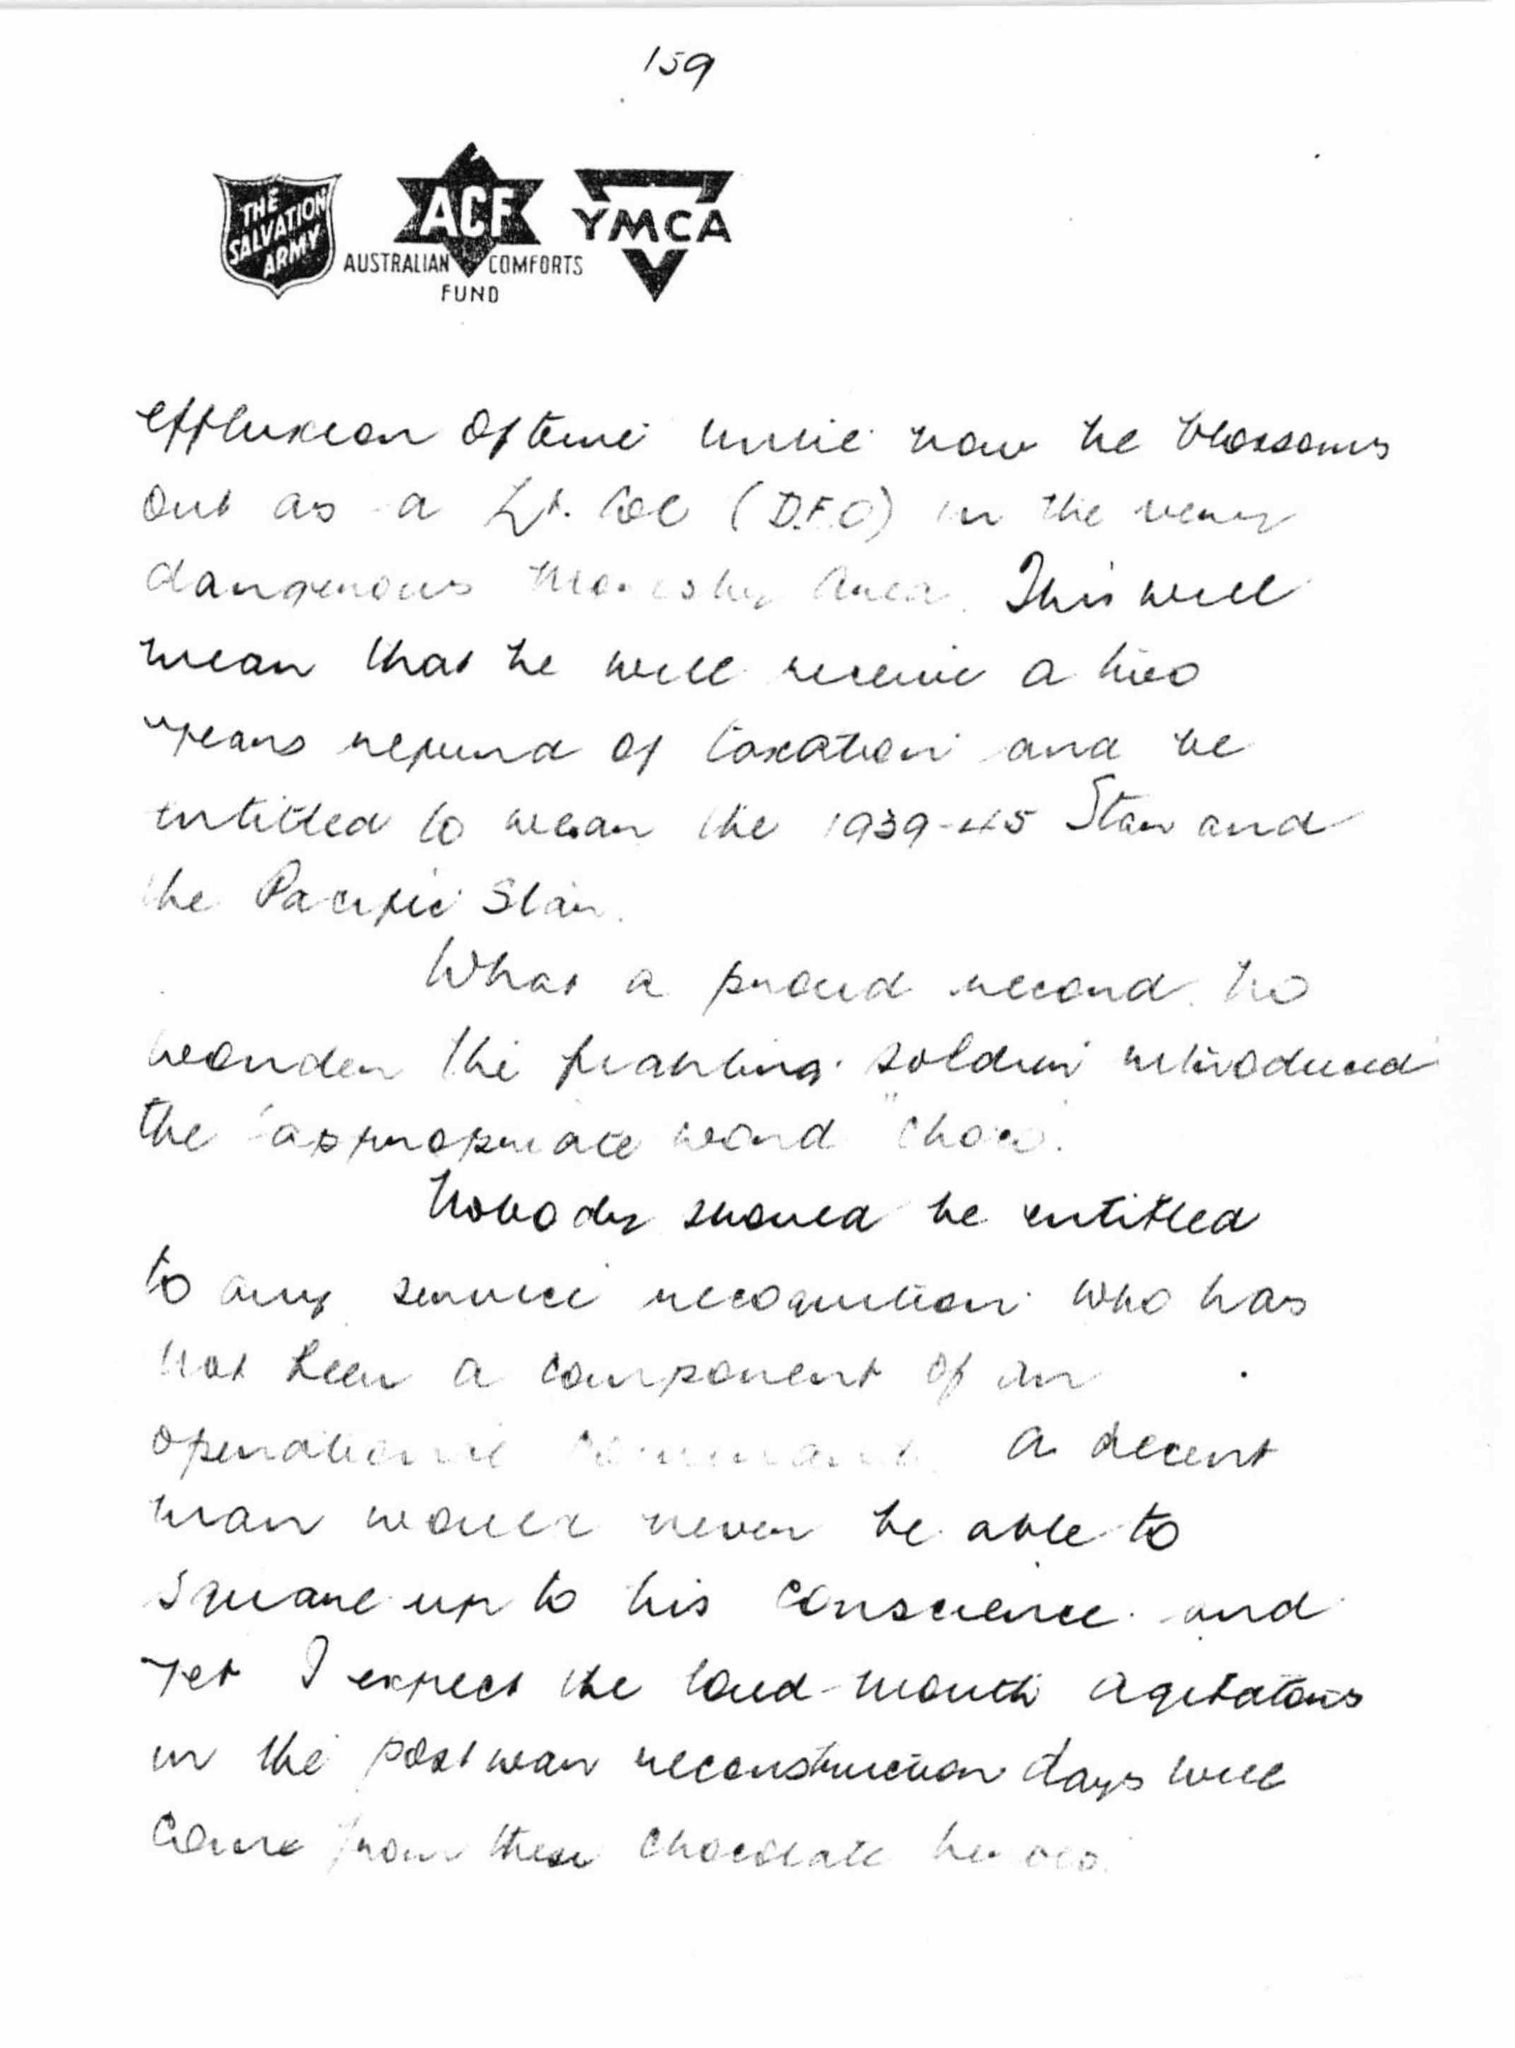 159
THE SALVATION ARMY
ACF
AUSTRALIAN COMFORTS
FUND
YMCA
effluxion of time until now he blossoms
out as a Lt. Col (D.F.O) in the very
dangerous Moresby Area. This will
mean that he will receive a two
years refund of taxation and be
entitled to wear the 1939-45 Star and
the Pacific Star.
What a proud record. No
wonder the fighting soldier introduced
the appropriate word "choco.
Nobody should be entitled
to any service recognition who has
not been a component of an
operational command. A decent
man would never be able to
square up to his conscience and
yet I expect the loud-mouth agitators
in the post war reconstruction days will
come from these chocolate heroes.